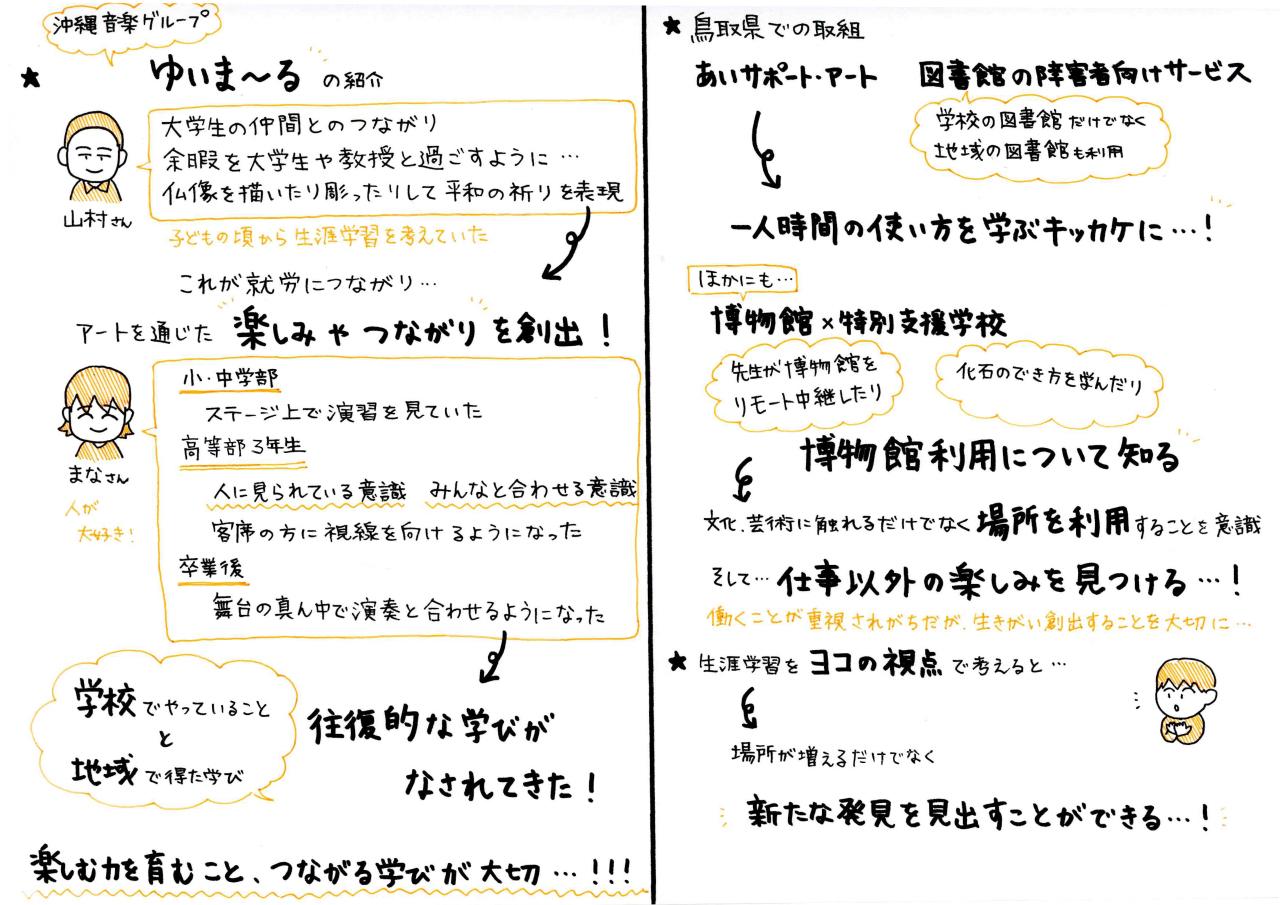 沖縄音楽グループ
★ ゆいま〜る の紹介
大学生の仲間とのつながり
余暇を大学生や教授と過ごすように…
仏像を描いたり彫ったりして平和の祈りを表現
山村さん
子どもの頃から生涯学習を考えていた
これが就労につながり…
アートを通じた 楽しみやつながりを創出！
小・中学部
ステージ上で演習を見ていた
高等部3年生
人に見られている意識 みんなと合わせる意識
客席の方に視線を向けるようになった
卒業後
舞台の真ん中で演奏と合わせるようになった
まなさん
人が
大好き！
学校でやっていること
と
地域で得た学び
往復的な学びが
なされてきた！
楽しむ力を育むこと、つながる学びが大切…!!!
★ 鳥取県での取組
あいサポート・アート 図書館の障害者向けサービス
学校の図書館だけでなく
地域の図書館も利用
一人時間の使い方を学ぶキッカケに…！
ほかにも…
博物館×特別支援学校
先生が博物館を
リモート中継したり
化石のでき方を学んだり
博物館利用について知る
文化、芸術に触れるだけでなく場所を利用することを意識
そして…仕事以外の楽しみを見つける…！
働くことが重視されがちだが、生きがい創出することを大切に…
★ 生涯学習をヨコの視点で考えると…
場所が増えるだけでなく
新たな発見を見出すことができる…！